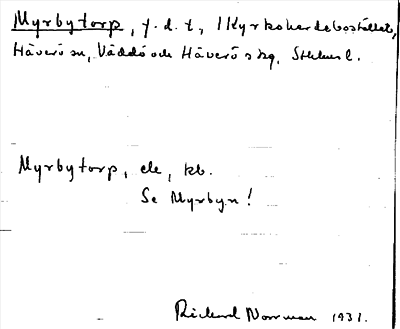 Myrbytorp, f.d.t., i Kyrkoherdebostället,
Häverö sn, Väddö och Häverö skg, Sthlms l.
Myrbytorp, ele, kb.
Se Myrbyn!
Rickard Norrman 1931.